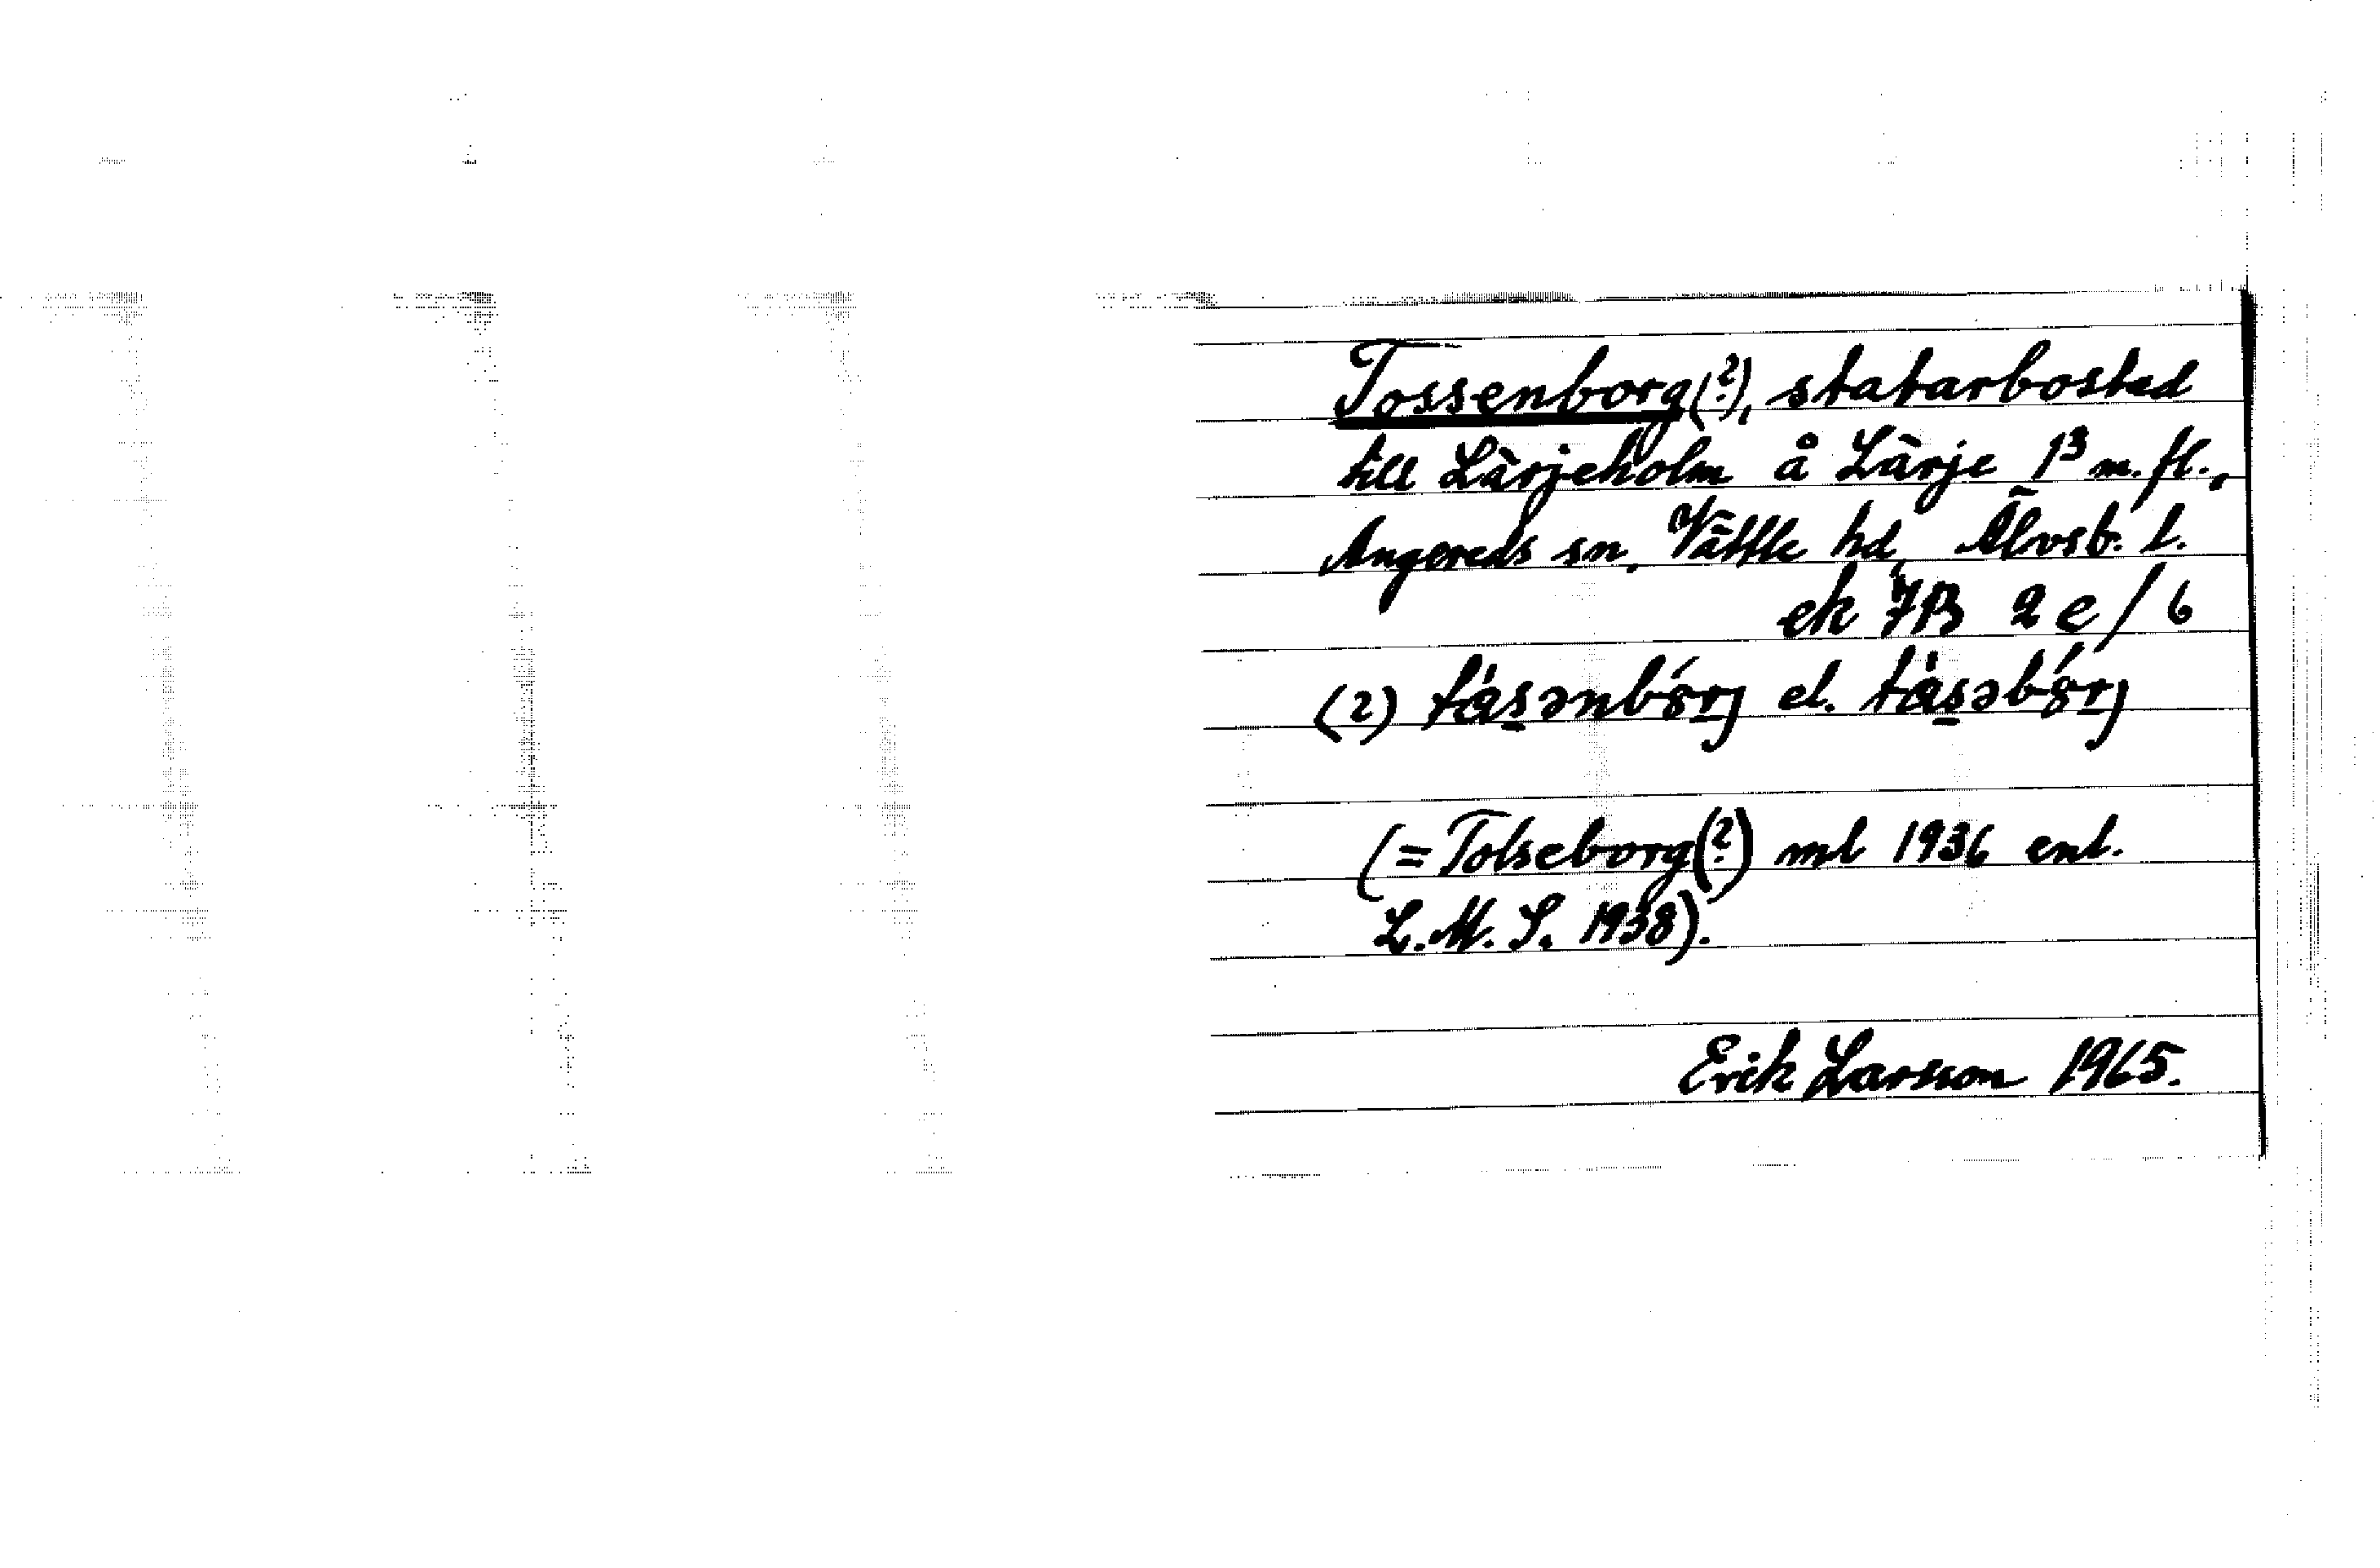 Tossenborg(?), statarbostad
till Lärjeholm å Lärje 1³ m.fl.,
Angereds sn, Vättle hd, Älvsb. l.
ek 7B 2e/6
(2) tåsənbǿrj el. tåsəbǿrj
(=Tolseborg(?) ml 1936 enl.
L.M.S. 1938).
Erik Larsson 1965.